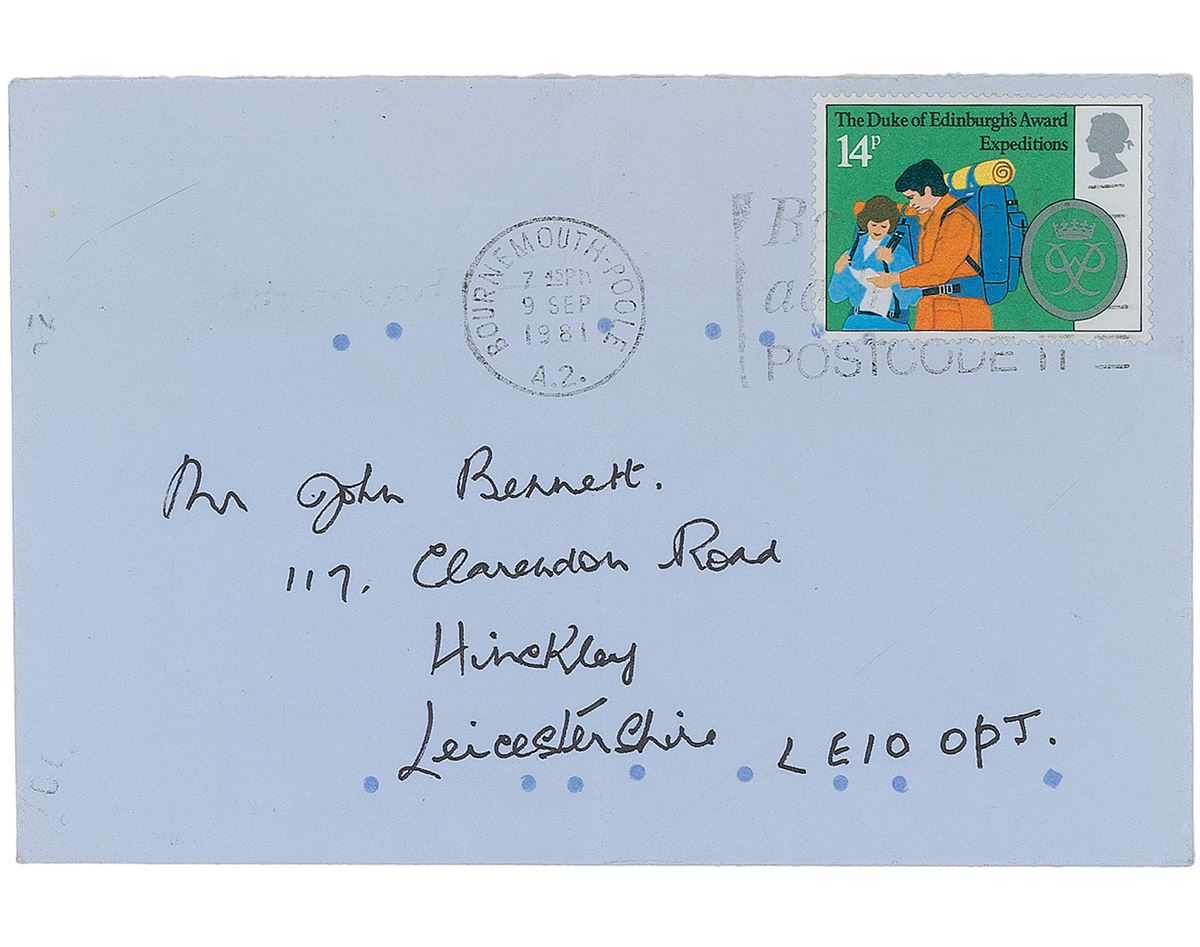 The Duke of Edinburgh's Award
Expeditions
14P
BOURNEMOUTH-POOLE
7 15PM
9 SEP
1981
A.2.
POSTCODE IT
Mr John Bennett.
117. Clarendon Road
Hinckley
Leicestershire LE10 0PJ.